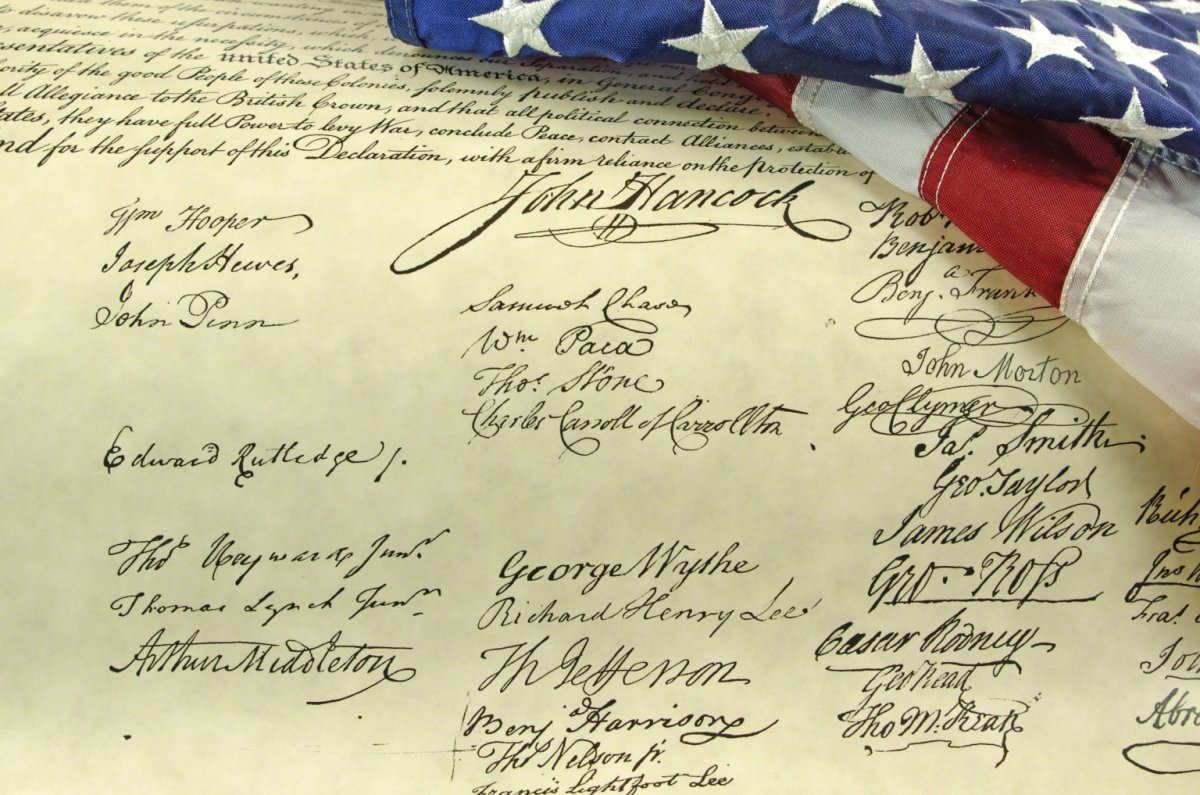 to disavow these usurpations, which
acquiesce in the necessity, which denounces our Separation, and
resentatives of the united States of America, in General Cong
ority of the good People of these Colonies, solemnly publish and declare,
ll Allegiance to the British Crown, and that all political connection between
tates, they have full Power to levy War, conclude Peace, contract Alliances, establ
nd for the support of this Declaration, with a firm reliance on the protection of
John Hancock
Wm Hooper
Joseph Hewes,
John Penn
Edward Rutledge /.
Thos Heyward Junr.
Thomas Lynch Junr
Arthur Middleton
Samuel Chase
Wm. Paca
Thos. Stone
Charles Carroll of Carrollton
George Wythe
Richard Henry Lee
Th Jefferson
Benj Harrison
Thos Nelson jr.
Francis Lightfoot Lee
Rob
Benjam
Benj. Frank
John Morton
Geo Clymer
Jas. Smith.
Geo. Taylor
James Wilson
Geo. Ross
Caesar Rodney
Geo Read
Tho M:Kean
Rich
Jno
Fras.
Abra